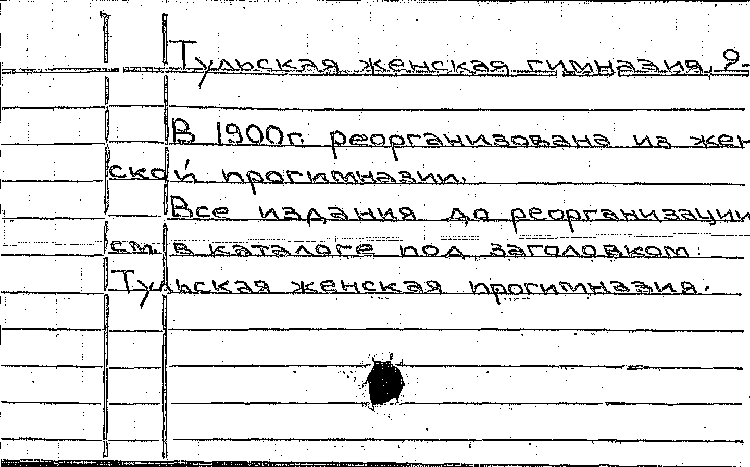 Тульская женская гимназия, 2-
В 1900г. реорганизована из жен
ской прогимназии.
Все издания до реорганизации
см. в каталоге под заголовком:
Тульская женская прогимназия.